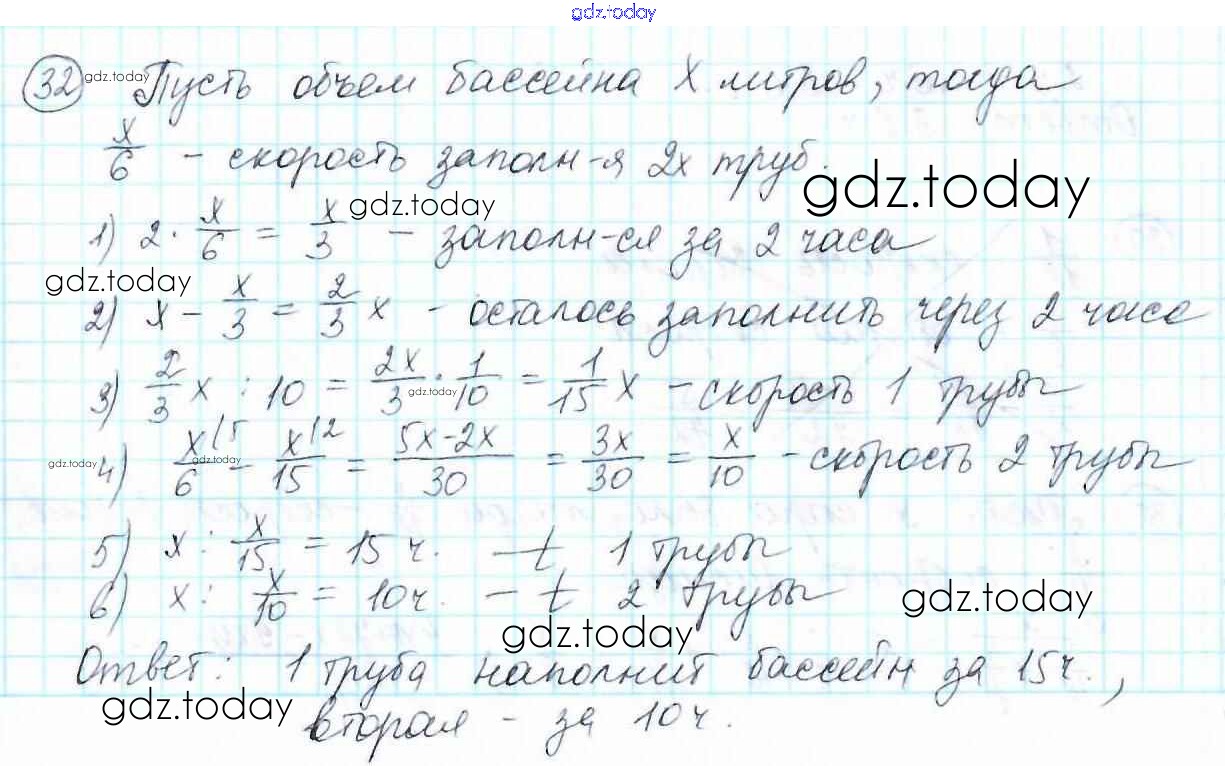 gdz.today
32 gdz.today Пусть объем бассейна x литров, тогда
x/6 - скорость заполн-я 2х труб.
gdz.today
gdz.today
1) 2 · x/6 = x/3 - заполн-ся за 2 часа
gdz.today
2) x - x/3 = 2/3 x - осталось заполнить через 2 часа
3) 2/3 x : 10 = 2x/3 · 1/10 = 1/15 x - скорость 1 трубы
gdz.today
4) x/6 |5 - x/15 |2 = 5x-2x/30 = 3x/30 = x/10 - скорость 2 трубы
gdz.today gdz.today
5) x : x/15 = 15 ч. - t 1 трубы
6) x : x/10 = 10ч. - t 2 трубы
gdz.today
gdz.today
Ответ: 1 труба наполнит бассейн за 15ч.,
gdz.today
вторая - за 10ч.